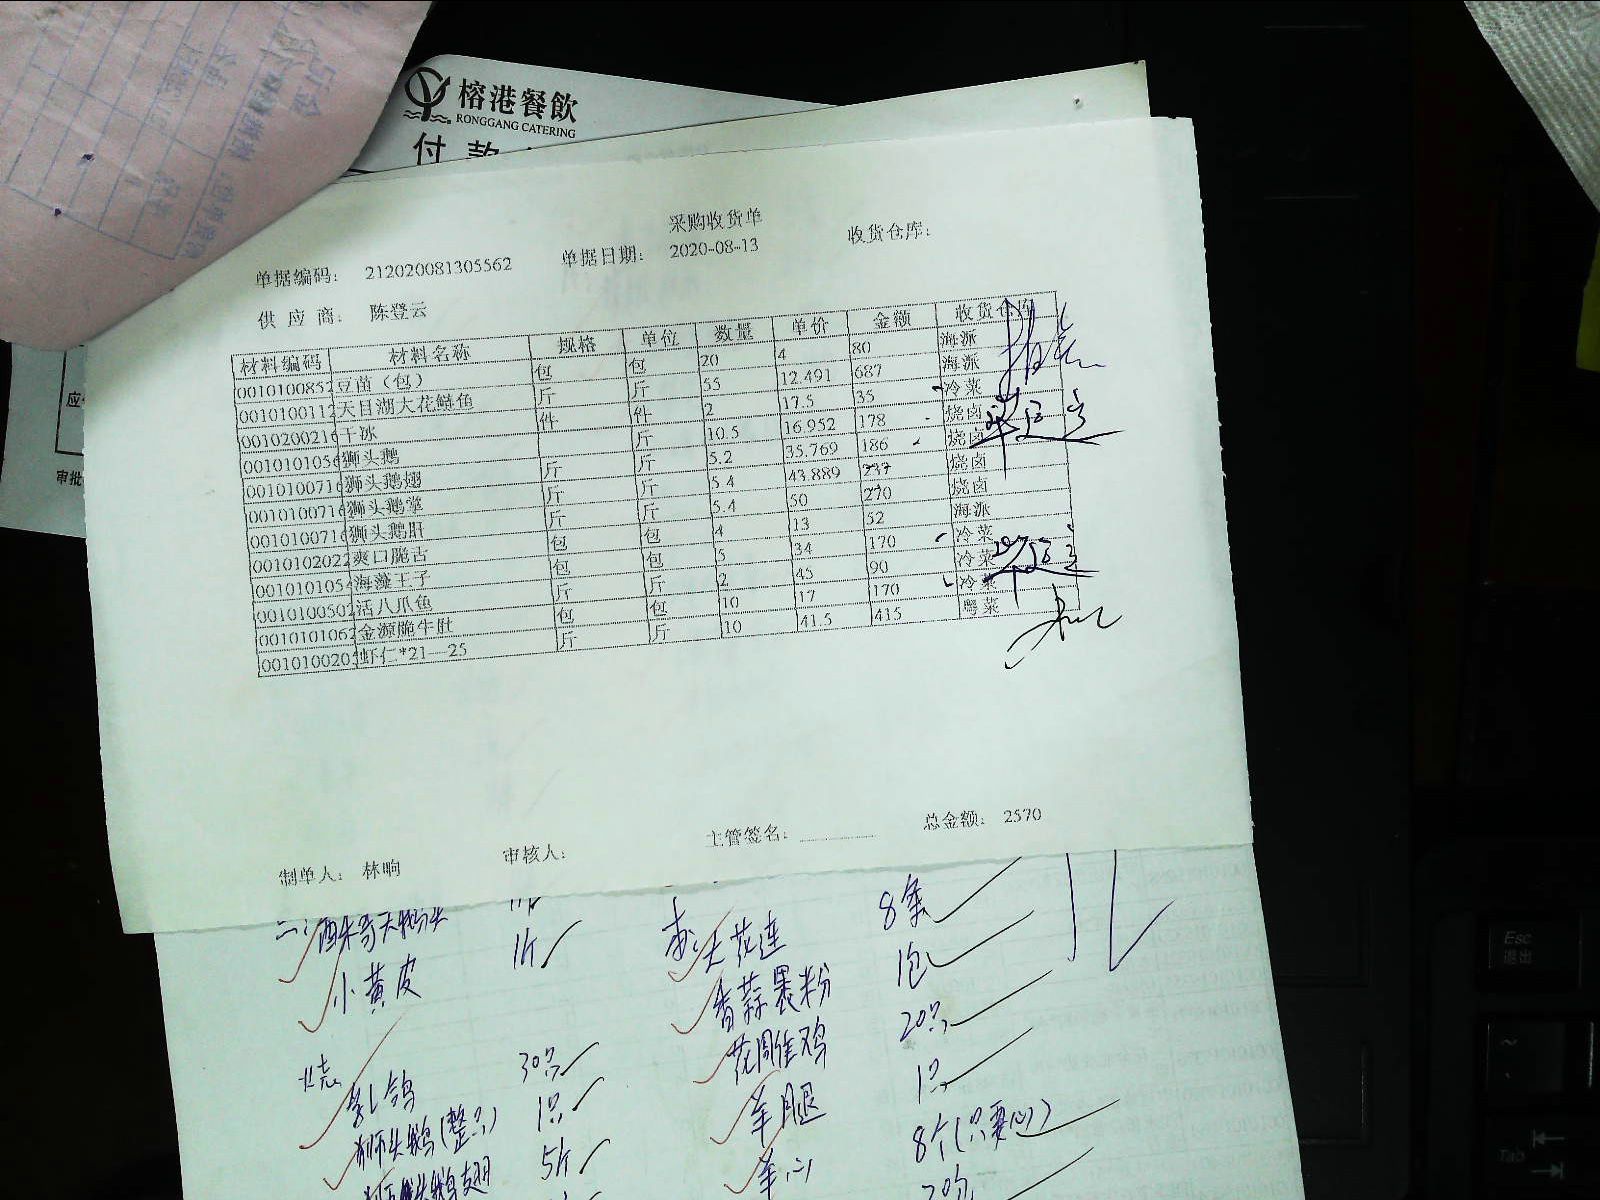 榕港餐飲
RONGGANG CATERING
付款
采购收货单
单据编码： 212020081305562 单据日期： 2020-08-13 收货仓库：
供应商： 陈登云
材料编码 材料名称 规格 单位 数量 单价 金额 收货仓库
0010100852 豆苗（包） 包 包 20 4 80 海派
0010100112 天目湖大花鲢鱼 斤 斤 55 12.491 687 海派
0010200216 干冰 件 件 2 17.5 35 冷菜
0010101056 狮头鹅 斤 10.5 16.952 178 烧卤
0010100716 狮头鹅翅 斤 斤 5.2 35.769 186 烧卤
0010100716 狮头鹅掌 斤 斤 5.4 43.889 237 烧卤
0010100716 狮头鹅肝 斤 斤 5.4 50 270 烧卤
0010102022 爽口脆舌 包 包 4 13 52 海派
0010101054 海藻王子 包 包 5 34 170 冷菜
0010100502 活八爪鱼 斤 斤 2 45 90 冷菜
0010101062 金源脆牛肚 包 包 10 17 170 冷菜
0010100205 虾仁*21—25 斤 斤 10 41.5 415 粤菜
主管签名： 总金额： 2570
制单人： 林晌 审核人：
审批
8条
小黄皮 1斤 大花连 1包
香蒜裹粉 20只
烧： 乳鸽 30只 花雕鸡 1只
狮头鹅(整只) 1只 羊腿 8个(只要心)
狮头鹅翅 5斤 羊心